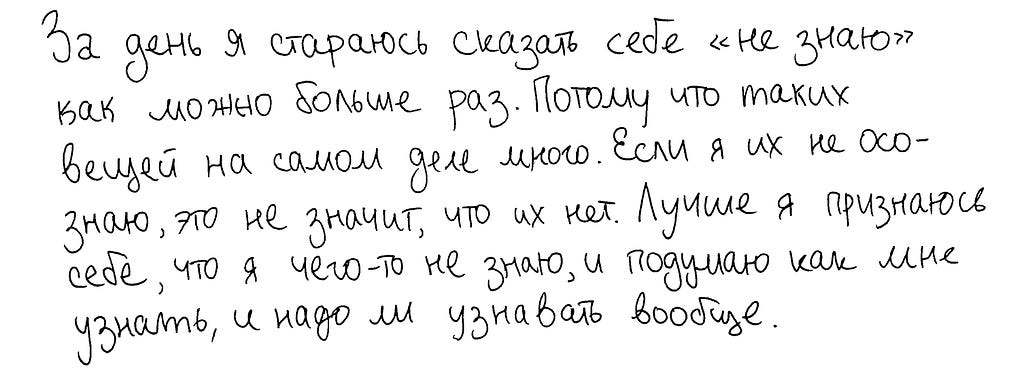 За день я стараюсь сказать себе «не знаю»
как можно больше раз. Потому что таких
вещей на самом деле много. Если я их не осо-
знаю, это не значит, что их нет. Лучше я признаюсь
себе, что я чего-то не знаю, и подумаю как мне
узнать, и надо ли узнавать вообще.